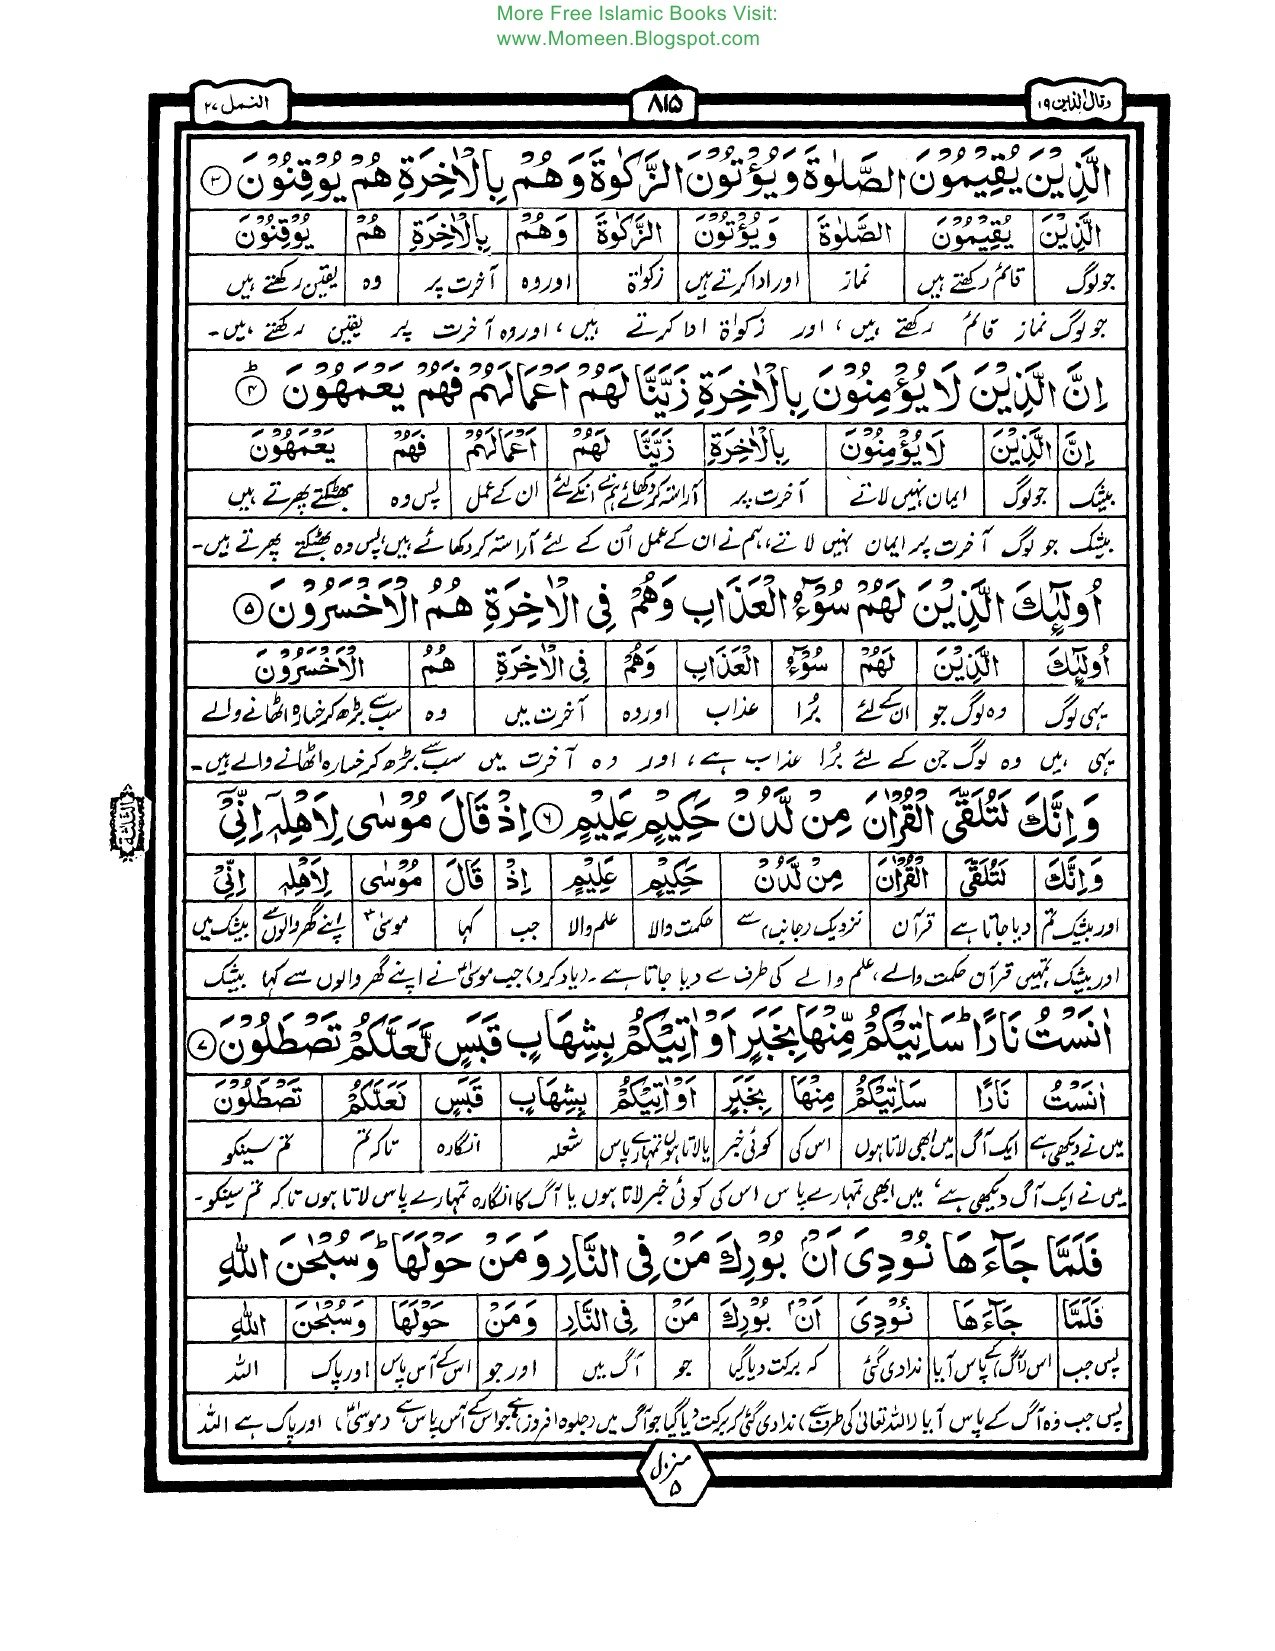 More Free Islamic Books Visit:
www.Momeen.Blogspot.com
وقال الذین ۱۹
۸۱۵
النمل ۲۷
الَّذِيْنَ يُقِيْمُوْنَ الصَّلٰوةَ وَيُؤْتُوْنَ الزَّكٰوةَ وَهُمْ بِالْاٰخِرَةِ هُمْ يُوْقِنُوْنَ ۳
الَّذِيْنَ يُقِيْمُوْنَ الصَّلٰوةَ وَيُؤْتُوْنَ الزَّكٰوةَ وَهُمْ بِالْاٰخِرَةِ هُمْ يُوْقِنُوْنَ
جو لوگ قائم رکھتے ہیں نماز اور ادا کرتے ہیں زکوٰۃ اور وہ آخرت پر وہ یقین رکھتے ہیں
جو لوگ نماز قائم رکھتے ہیں، اور زکوٰۃ ادا کرتے ہیں، اور وہ آخرت پر یقین رکھتے ہیں۔
اِنَّ الَّذِيْنَ لَا يُؤْمِنُوْنَ بِالْاٰخِرَةِ زَيَّنَّا لَهُمْ اَعْمَالَهُمْ فَهُمْ يَعْمَهُوْنَ ۴ ط
اِنَّ الَّذِيْنَ لَا يُؤْمِنُوْنَ بِالْاٰخِرَةِ زَيَّنَّا لَهُمْ اَعْمَالَهُمْ فَهُمْ يَعْمَهُوْنَ
بیشک جو لوگ ایمان نہیں لاتے آخرت پر آراستہ کر دکھائے ہم نے انکے لئے ان کے عمل پس وہ بھٹکتے پھرتے ہیں
بیشک جو لوگ آخرت پر ایمان نہیں لاتے، ہم نے ان کے عمل اُن کے لئے آراستہ کر دکھائے ہیں، پس وہ بھٹکتے پھرتے ہیں۔
اُولٰٓئِكَ الَّذِيْنَ لَهُمْ سُوْٓءُ الْعَذَابِ وَهُمْ فِى الْاٰخِرَةِ هُمُ الْاَخْسَرُوْنَ ۵
اُولٰٓئِكَ الَّذِيْنَ لَهُمْ سُوْٓءُ الْعَذَابِ وَهُمْ فِى الْاٰخِرَةِ هُمُ الْاَخْسَرُوْنَ
یہی لوگ وہ لوگ جو ان کے لئے بُرا عذاب اور وہ آخرت میں وہ سب سے بڑھ کر خسارہ اٹھانے والے
یہی ہیں وہ لوگ جن کے لئے بُرا عذاب ہے، اور وہ آخرت میں سب سے بڑھ کر خسارہ اٹھانے والے ہیں۔
وَاِنَّكَ لَتُلَقَّى الْقُرْاٰنَ مِنْ لَّدُنْ حَكِيْمٍ عَلِيْمٍ ۶ اِذْ قَالَ مُوْسٰى لِاَهْلِهٖٓ اِنِّىْٓ
وَاِنَّكَ لَتُلَقَّى الْقُرْاٰنَ مِنْ لَّدُنْ حَكِيْمٍ عَلِيْمٍ اِذْ قَالَ مُوْسٰى لِاَهْلِهٖٓ اِنِّىْٓ
اور بیشک تم دیا جاتا ہے قرآن نزدیک (جانب) سے حکمت والا علم والا جب کہا موسیٰؑ اپنے گھر والوں سے بیشک میں
اور بیشک تمہیں قرآن حکمت والے، علم والے کی طرف سے دیا جاتا ہے۔ (یاد کرو) جب موسیٰؑ نے اپنے گھر والوں سے کہا بیشک
اٰنَسْتُ نَارًا ط سَاٰتِيْكُمْ مِّنْهَا بِخَبَرٍ اَوْ اٰتِيْكُمْ بِشِهَابٍ قَبَسٍ لَّعَلَّكُمْ تَصْطَلُوْنَ ۷
اٰنَسْتُ نَارًا سَاٰتِيْكُمْ مِنْهَا بِخَبَرٍ اَوْ اٰتِيْكُمْ بِشِهَابٍ قَبَسٍ لَعَلَّكُمْ تَصْطَلُوْنَ
میں نے دیکھی ہے ایک آگ میں ابھی لاتا ہوں اس کی کوئی خبر یا لاتا ہوں تمہارے پاس شعلہ انگارہ تاکہ تم تم سینکو
میں نے ایک آگ دیکھی ہے، میں ابھی تمہارے پاس اس کی کوئی خبر لاتا ہوں یا آگ کا انگارہ تمہارے پاس لاتا ہوں تاکہ تم سینکو۔
فَلَمَّا جَآءَهَا نُوْدِىَ اَنْۢ بُوْرِكَ مَنْ فِى النَّارِ وَمَنْ حَوْلَهَا ط وَسُبْحٰنَ اللّٰهِ
فَلَمَّا جَآءَهَا نُوْدِىَ اَنْۢ بُوْرِكَ مَنْ فِى النَّارِ وَمَنْ حَوْلَهَا وَسُبْحٰنَ اللّٰهِ
پس جب اس (آگ) کے پاس آیا ندا دی گئی کہ برکت دیا گیا جو آگ میں اور جو اس کے آس پاس اور پاک اللہ
پس جب وہ آگ کے پاس آیا (اللہ تعالیٰ کی طرف سے) ندا دی گئی کہ برکت دیا گیا جو آگ میں (جلوہ افروز) ہے جو اس کے آس پاس ہے (موسیٰؑ)، اور پاک ہے اللہ
منزل ۵